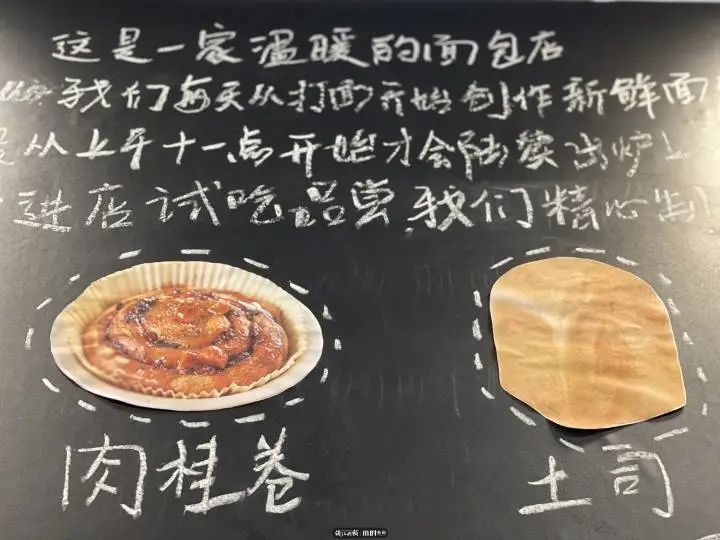 这是一家温暖的面包店
我们每天从打面开始创作新鲜面
从上午十一点开始才会陆续出炉
进店试吃品尝,我们精心制
肉桂卷
土司